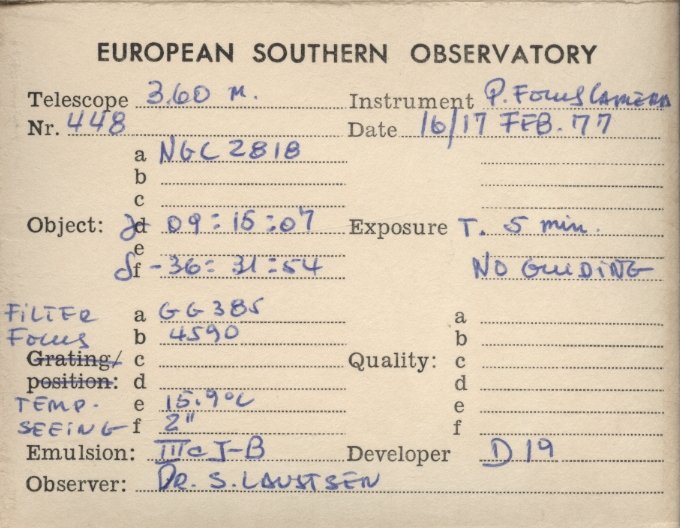 EUROPEAN SOUTHERN OBSERVATORY
Telescope 3.60 m. Instrument P. Focus Camera
Nr. 448 Date 16/17 FEB. 77
a NGC 2818
b
c
Object: α d 09:15:07 Exposure T. 5 min.
e
δ f -36:31:54 NO GUIDING
FILTER a GG385 a
Focus b 4590 b
Grating/ c Quality: c
position: d d
TEMP. e 15.9°C e
SEEING f 2" f
Emulsion: IIIa J-B Developer D19
Observer: DR. S. LAUSTSEN